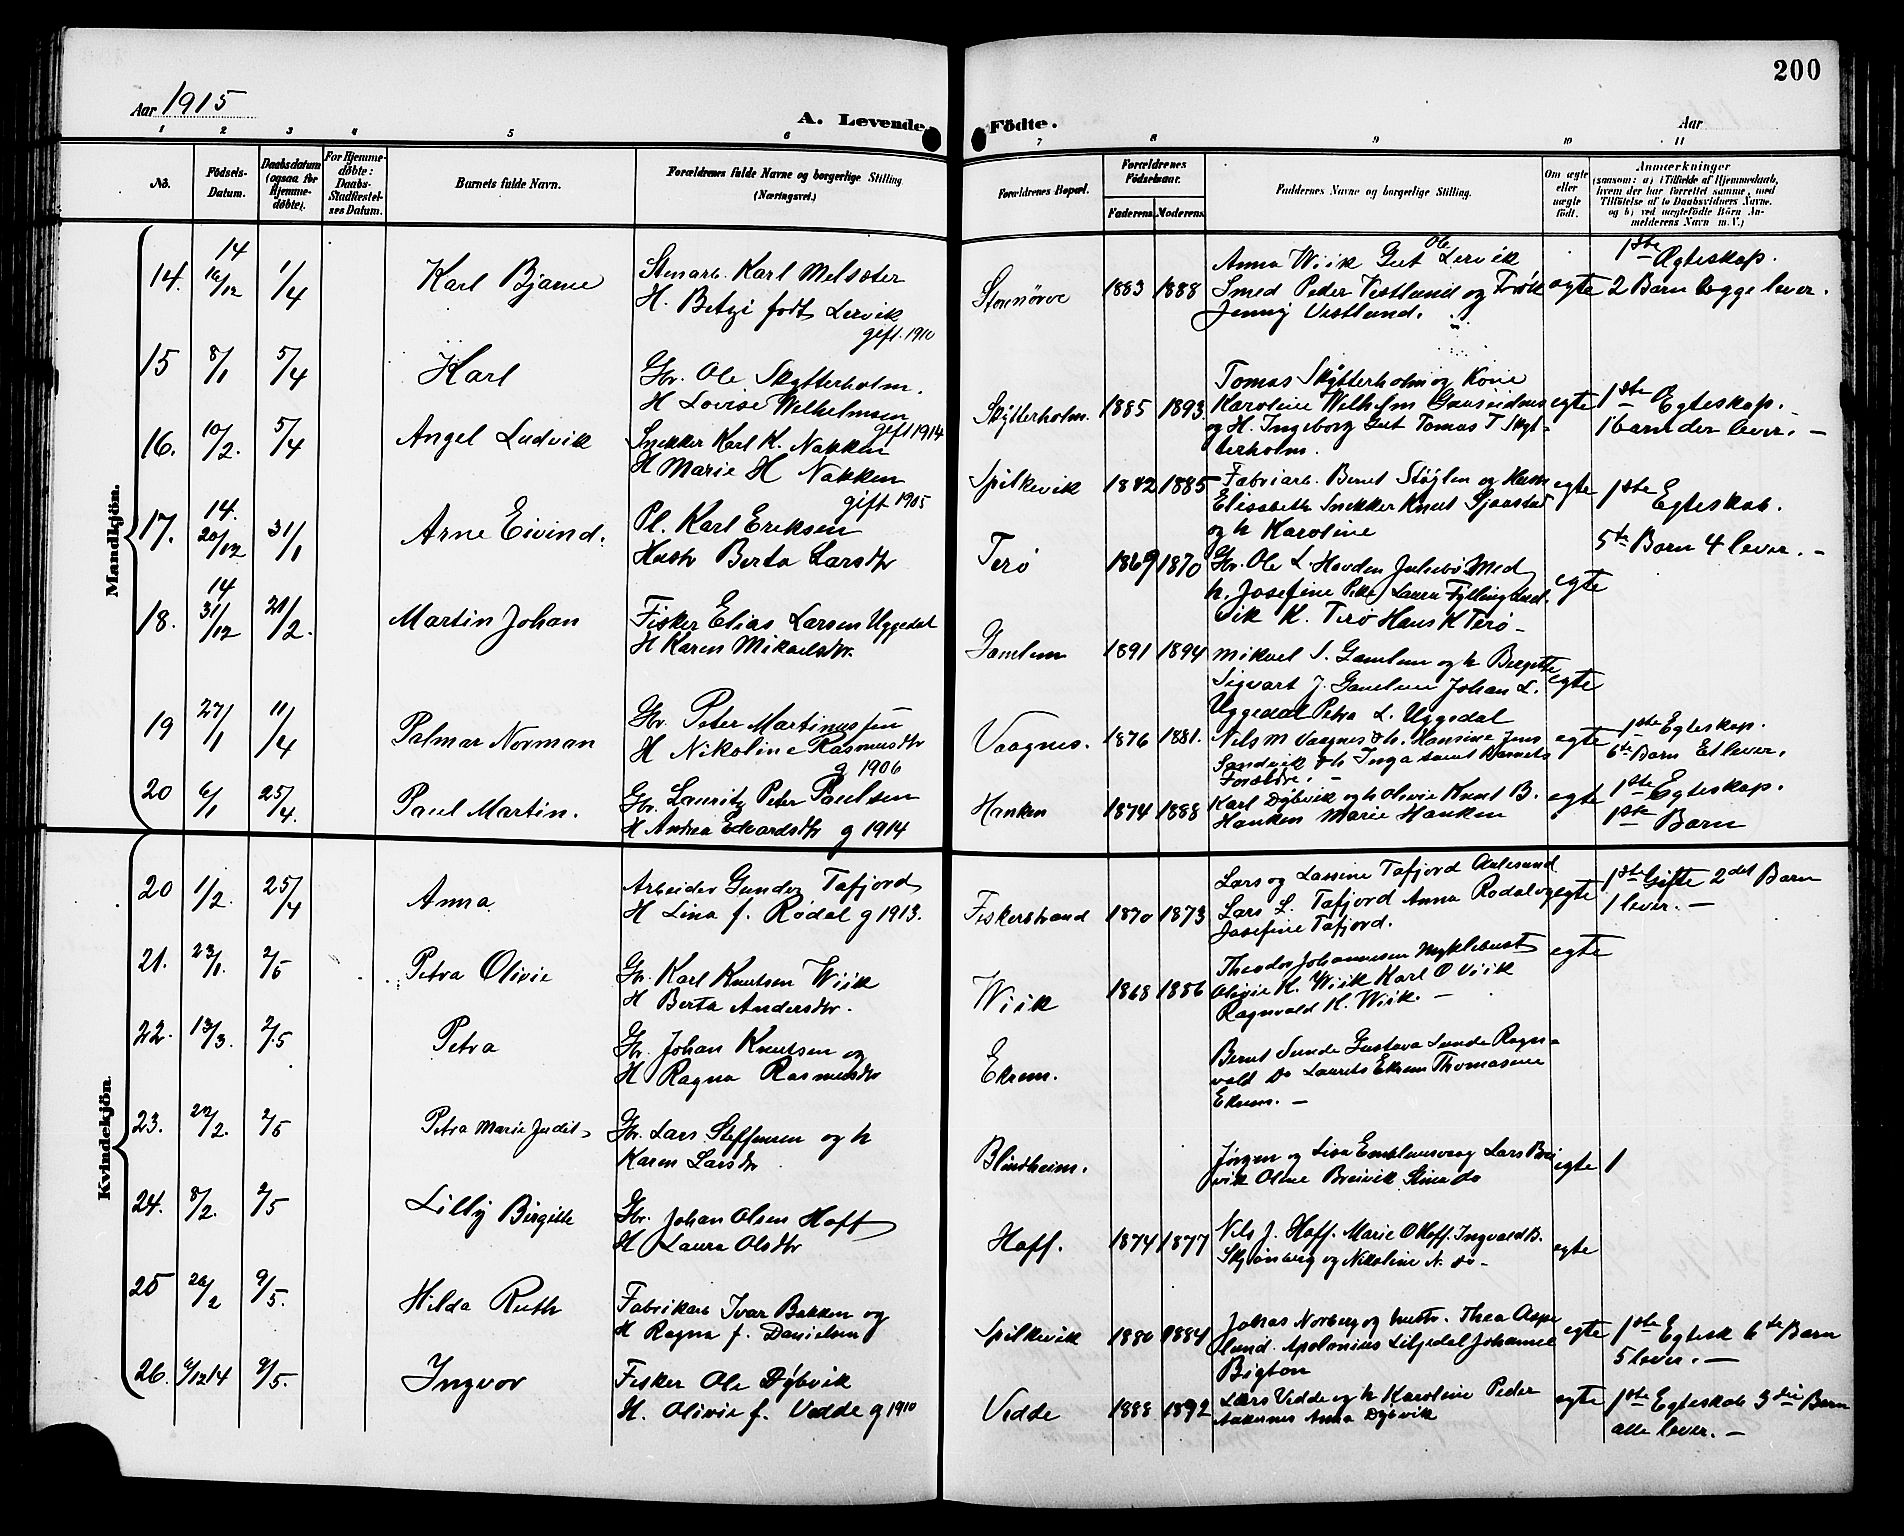 200
Aar 1915
A. Levende Födte.
Aar
1 2 3 4 5 6 7 8 9 10 11
No.
Födsels-Datum.
Daabsdatum (ogsaa for Hjemme-döbte).
For Hjemme-döbte: Daabs-Stadfæstel-ses Datum.
Barnets fulde Navn.
Forældrenes fulde Navne og borgerlige Stilling (Næringsvei.)
Forældrenes Bopæl.
Forældrenes Födselsaar.
Faderens Moderens
Faddernes Navne og borgerlige Stilling.
Om ægte eller uægte født.
Anmærkninger
(saasom: a) i Tilfælde af Hjemmedaab, hvem der har forrettet samme, med Tilföielse af to Daabsvidners Navne. og b) ved uægtefödte Börn An-melderens Navn m. V.)
Mandkjön.
14. 14 16/12 1/4 Karl Bjarne
Stenarb. Karl Melsæter
H. Betzi født Lervik
gift. 1910
Stornörve 1883 1888
Anna Wiik Gut Ole Lervik
Smed Peder Vestlund og Frøk
Jenny Vestlund.
egte
1ste Ægteskap.
2 Barn begge lever.
15 8/1 5/4 Karl
Gbr. Ole Skytterholm.
H Lovise Wilhelmsen
gift 1914
Skytterholm. 1885 1893
Tomas Skytterholm og Kone
Karoline Wilhelm Gaaseidnes
og H. Ingeborg Gut Tomas T Skyt-
terholm.
egte
1ste Egteskap.
1 barn der lever. -
16. 10/2. 5/4 Angel Ludvik
Snekker Karl K. Nakken
H Marie H Nakken
gift 1905
Spilkevik 1882 1885
Fabriarb. Bernt Støglen og Hustr
Elisabeth Snekker Knut Sjaastad
og h Karoline
egte
1ste Egteskab.
5te Barn 4 lever. -
17. 14. 20/12 31/1 Arne Eivind.
Pl. Karl Eriksen
Hustr Berta Larsdtr
Terö 1869 1870
Gbr. Ole L. Hovden Julebö Med
h. Josefine Petr. Laura Fylling Lud.
vik K. Terö Hans K Terö -
egte
18. 14 31/12 21/2. Martin Johan
Fisker Elias Larsen Uggedal
H Karen Mikaelsdtr.
Gamlem 1891 1894
Mikael S. Gamlem og h Birgitte
Sigvart J. Gamlem Johan L.
Uggedal Petra L. Uggedal
egte
19 27/1 11/4 Palmar Norman
Gbr. Peter Martinussen
H Nikoline Rasmusdtr
g 1906
Vaagnes. 1876 1881.
Nils M Vaagnes & h. Hansine Jens
Sandvik & h Inga samt Barnets
Forældre. -
egte
1ste Egteskap.
6te Barn Et lever.
20 6/1 25/4. Paul Martin.
Gbr. Lauritz Peter Paulsen
H Andrea Edvardsdtr g 1914
Hanken 1874 1888
Karl Dybvik og h Olivie Knut B.
Hanken Marie Hanken
egte
1ste Egteskap.
1ste Barn
Kvindekjön.
20 1/2. 25/4 Anna
Arbeider Gunder Tafjord
H Lina f. Rødal g 1913.
Fiskerstrand 1870 1873
Lars og Lassine Tafjord Aalesund
Lars L. Tafjord Anna Rødal og
Josefine Tafjord.
egte
1ste Gifte 2det Barn
1 lever. -
21. 23/1. 2/5 Petra Olivie
Gbr. Karl Knutsen Wiik
H Berta Andersdtr.
Wiik 1868 1886
Theodor Johannesen Myklebust
Olivie K. Wiik Karl O Viik
Ragnvald K. Wiik. -
egte
22. 13/3. 2/5 Petra
Gbr. Johan Knutsen og
H Ragna Rasmusdtr
Ekrem.
Bernt Sunde Gustava Sunde Ragn-
vald Do Laurits Ekrem Thomasine
Ekrem. -
23. 2/5 Petra Marie Judit
Gbr. Lars Steffensen og h
Karen Larsdtr
Blindheim.
Jørgen og Lisa Emblemsvaag Lars Brei
vik Oline Breivik Stina do
egte 1
24. 8/2. 2/5 Lilly Birgitte
Gbr. Johan Olsen Hoff
H Laura Olsdtr
Hoff. 1874 1877
Nils J. Hoff. Marie O Hoff. Ingvald B.
Skjönberg og Nikoline N. do -
egte
25 26/2 9/5. Hilda Ruth
Fabrikarb Ivar Bakken og
H Ragna f. Danielsen
Spilkevik 1880 1884
Johas Norberg og hustr. Thea Aspe
lund. Apolonius Liljedal Johanne
Bigton
egte
1ste Egtesk 6te Barn
5 lever. -
26. 6/12 14 9/5. Ingvor
Fisker Ole Dybvik
H. Olivie f. Vedde g 1910
Vedde 1888 1892
Lars Vedde og h Karoline Peder
Aakernes Anna Dybvik
egte
1ste Egteskab 3die Barn
alle lever. -